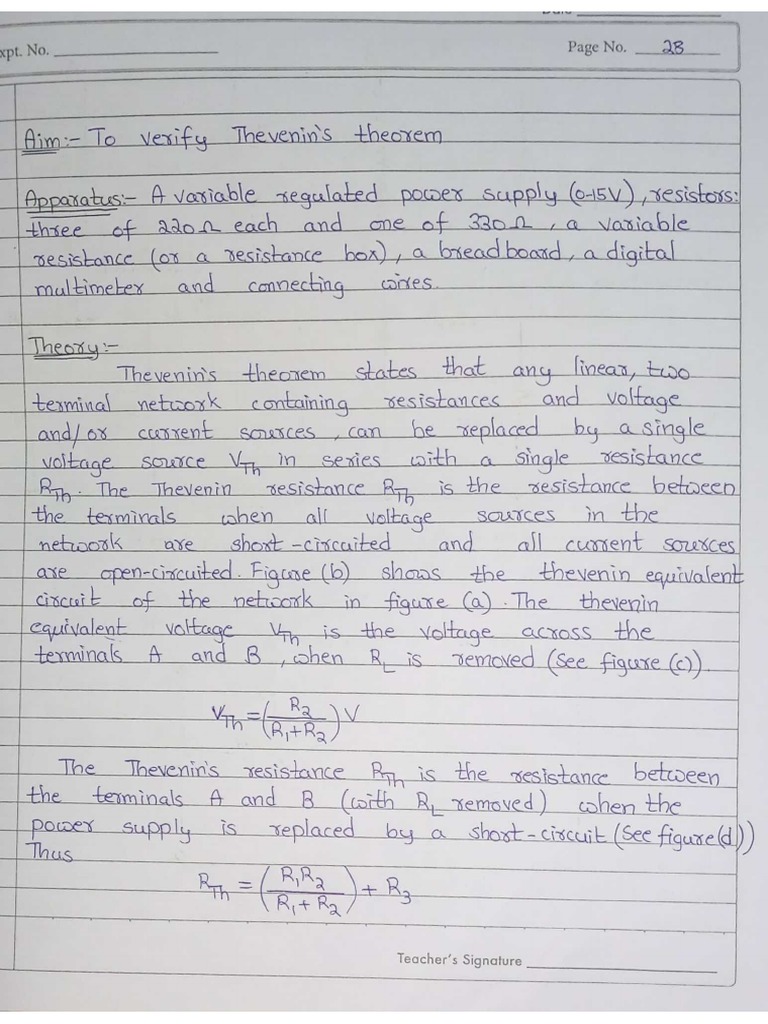 xpt. No.
Page No. 28
Aim:- To verify Thevenin's theorem
Apparatus:- A variable regulated power supply (0-15V), resistors:
three of 220Ω each and one of 330Ω, a variable
resistance (or a resistance box), a bread board, a digital
multimeter and connecting wires.
Theory:-
Thevenin's theorem states that any linear, two
terminal network containing resistances and voltage
and/or current sources, can be replaced by a single
voltage source V_Th in series with a single resistance
R_Th. The Thevenin resistance R_Th is the resistance between
the terminals when all voltage sources in the
network are short-circuited and all current sources
are open-circuited. Figure (b) shows the thevenin equivalent
circuit of the network in figure (a). The thevenin
equivalent voltage V_Th is the voltage across the
terminals A and B, when R_L is removed (see figure (c)).
V_Th = (R_2 / (R_1 + R_2)) V
The Thevenin's resistance R_Th is the resistance between
the terminals A and B (with R_L removed) when the
power supply is replaced by a short-circuit (see figure(d))
Thus
R_Th = (R_1 R_2 / (R_1 + R_2)) + R_3
Teacher's Signature